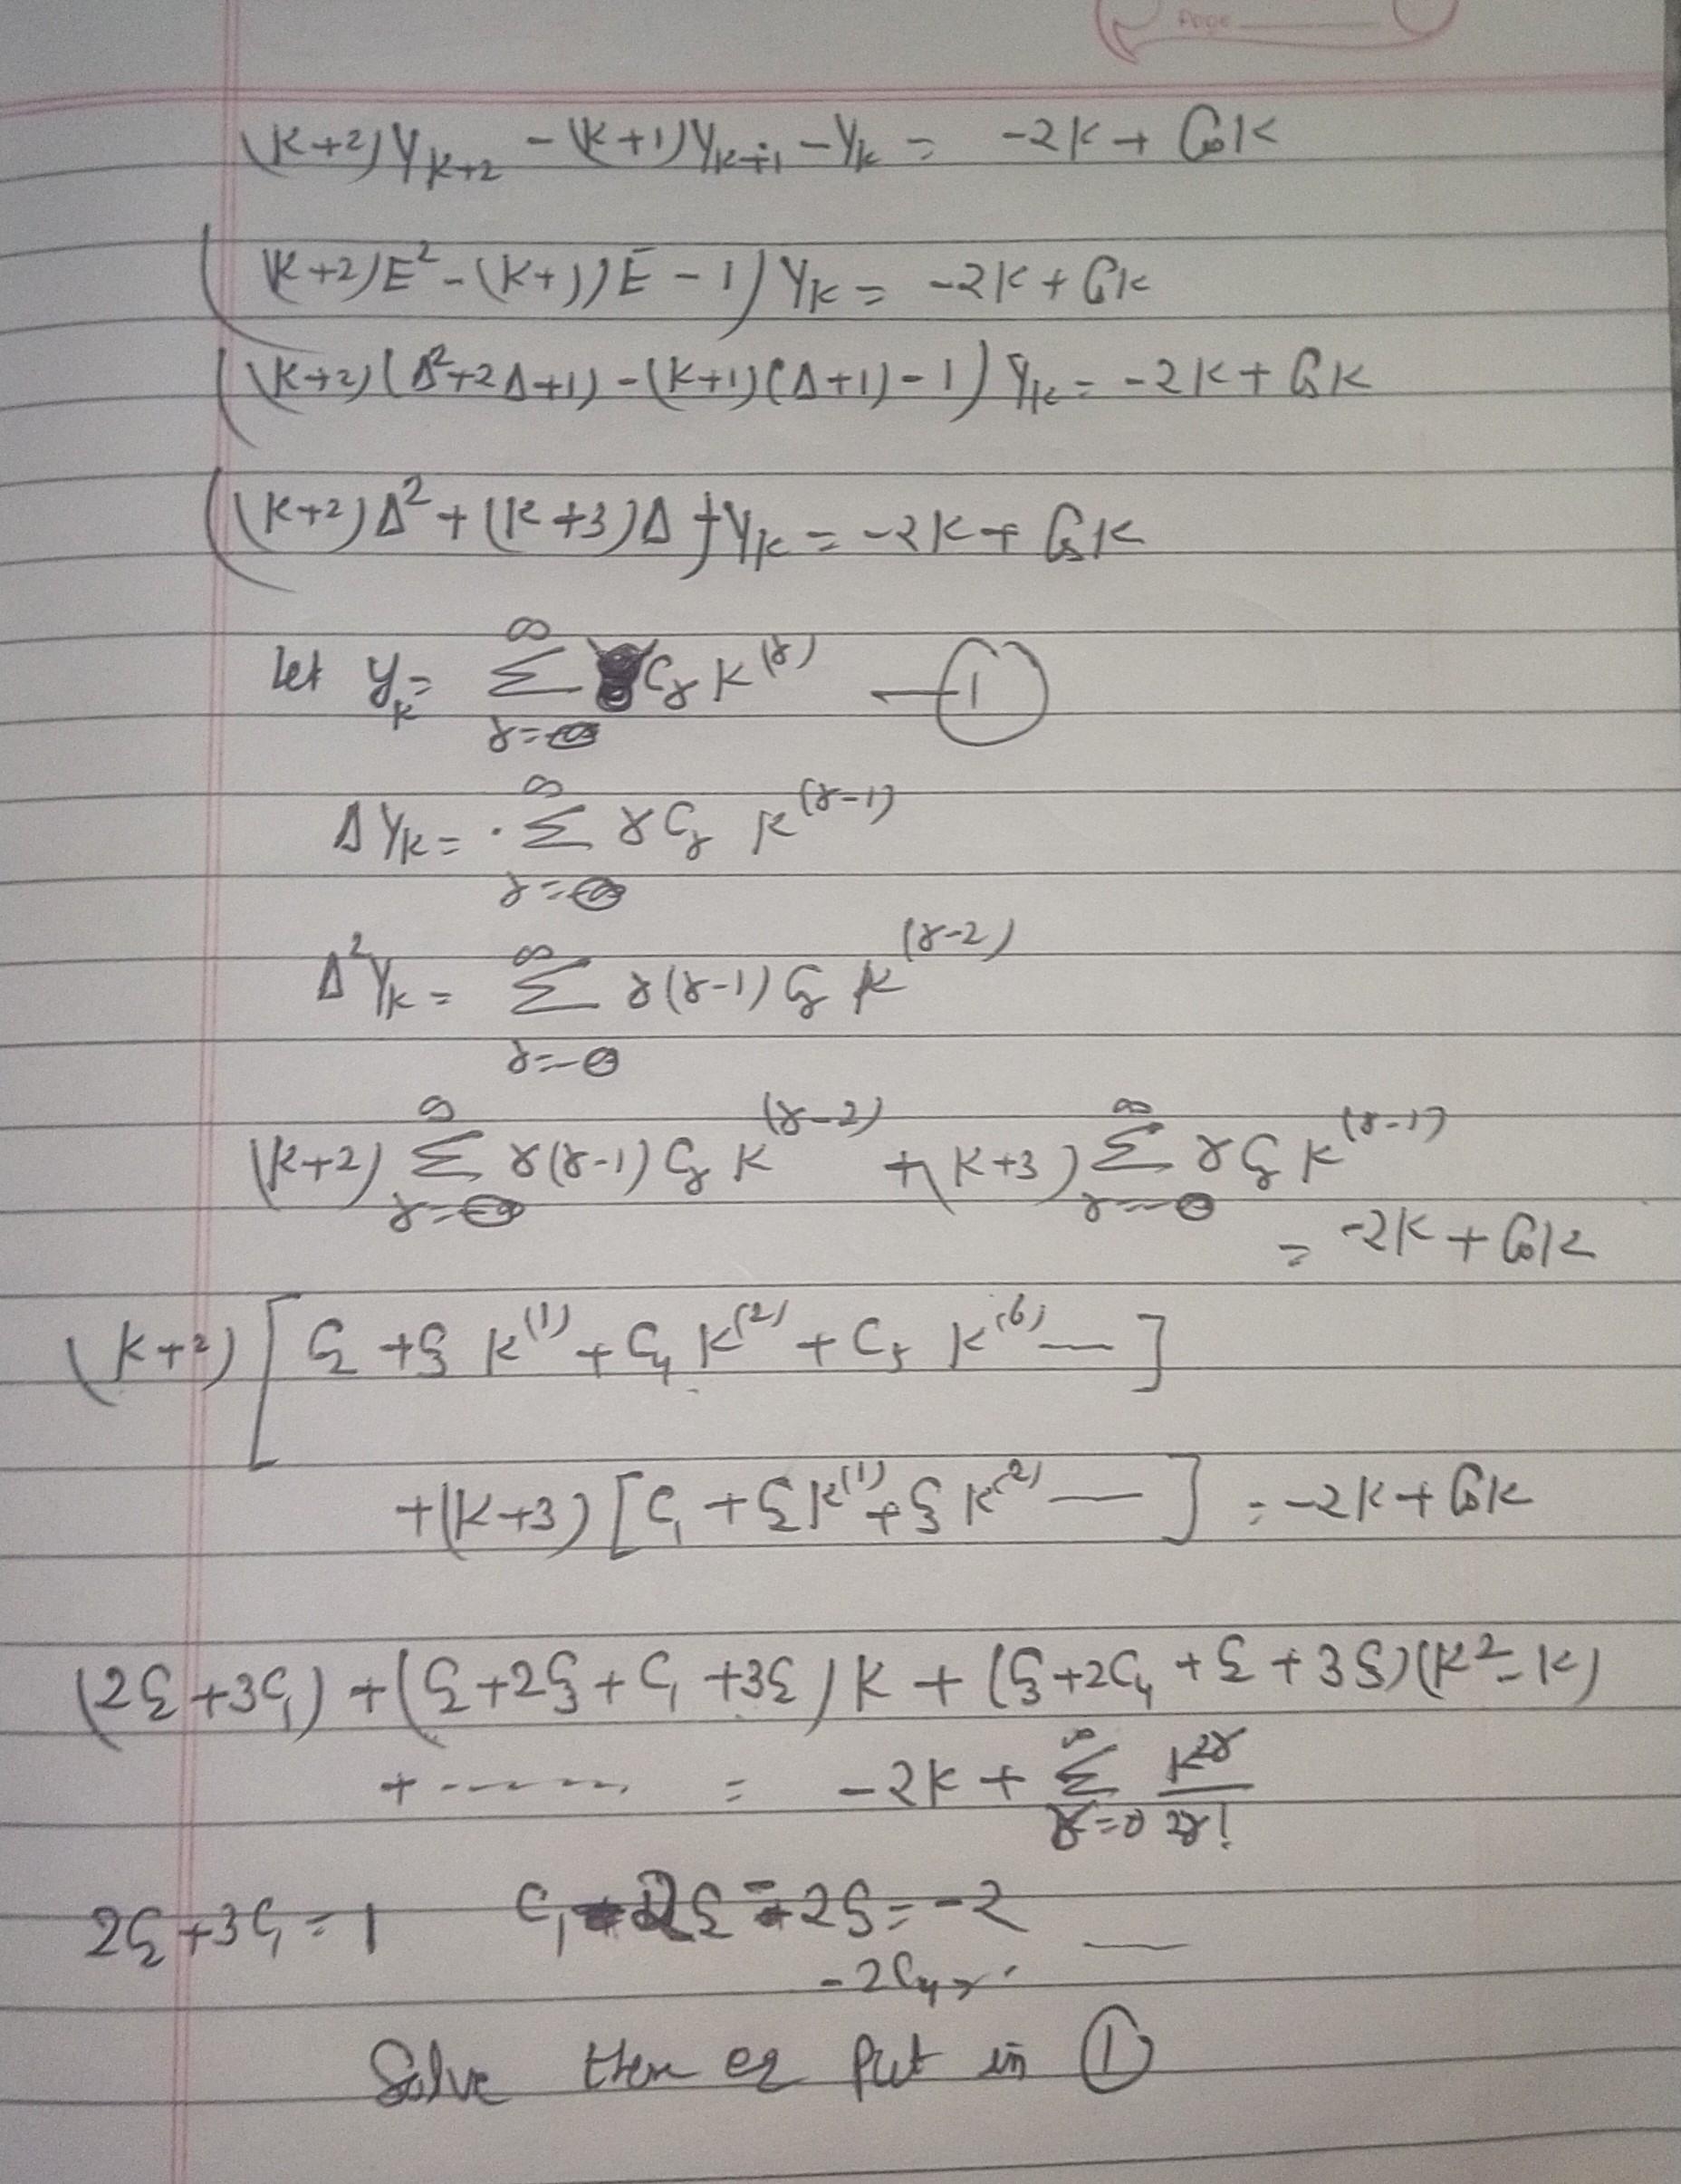 Page
(K+2)Y_{K+2} - (K+1)Y_{K+1} - Y_K = -2K + Cos K
((K+2)E² - (K+1)E - 1) Y_K = -2K + Cos K
((K+2)(Δ²+2Δ+1) - (K+1)(Δ+1) - 1) Y_K = -2K + Cos K
((K+2)Δ² + (K+3)Δ) Y_K = -2K + Cos K
let y_K = Σ_{γ=-∞}^{∞} C_γ K^{(γ)} — ①
ΔY_K = . Σ_{γ=-∞}^{∞} γ C_γ K^{(γ-1)}
Δ²Y_K = Σ_{γ=-∞}^{∞} γ(γ-1) C_γ K^{(γ-2)}
(K+2) Σ_{γ=-∞}^{∞} γ(γ-1) C_γ K^{(γ-2)} + (K+3) Σ_{γ=-∞}^{∞} γ C_γ K^{(γ-1)}
= -2K + Cos K
(K+2) [ C₂ + C₃ K^{(1)} + C₄ K^{(2)} + C₅ K^{(6)} — ]
+(K+3) [ C₁ + C₂ K^{(1)} + C₃ K^{(2)} — ] = -2K + Cos K
(2C₂ + 3C₁) + (C₂ + 2C₃ + C₁ + 3C₂) K + (C₃ + 2C₄ + C₂ + 3C₃)(K² - K)
+ ------- = -2K + Σ_{γ=0}^{∞} K^{2γ}/2γ!
2C₂ + 3C₁ = 1 C₁ 2C₃ = -2 —
-2C₄
Solve then eq Put in ①